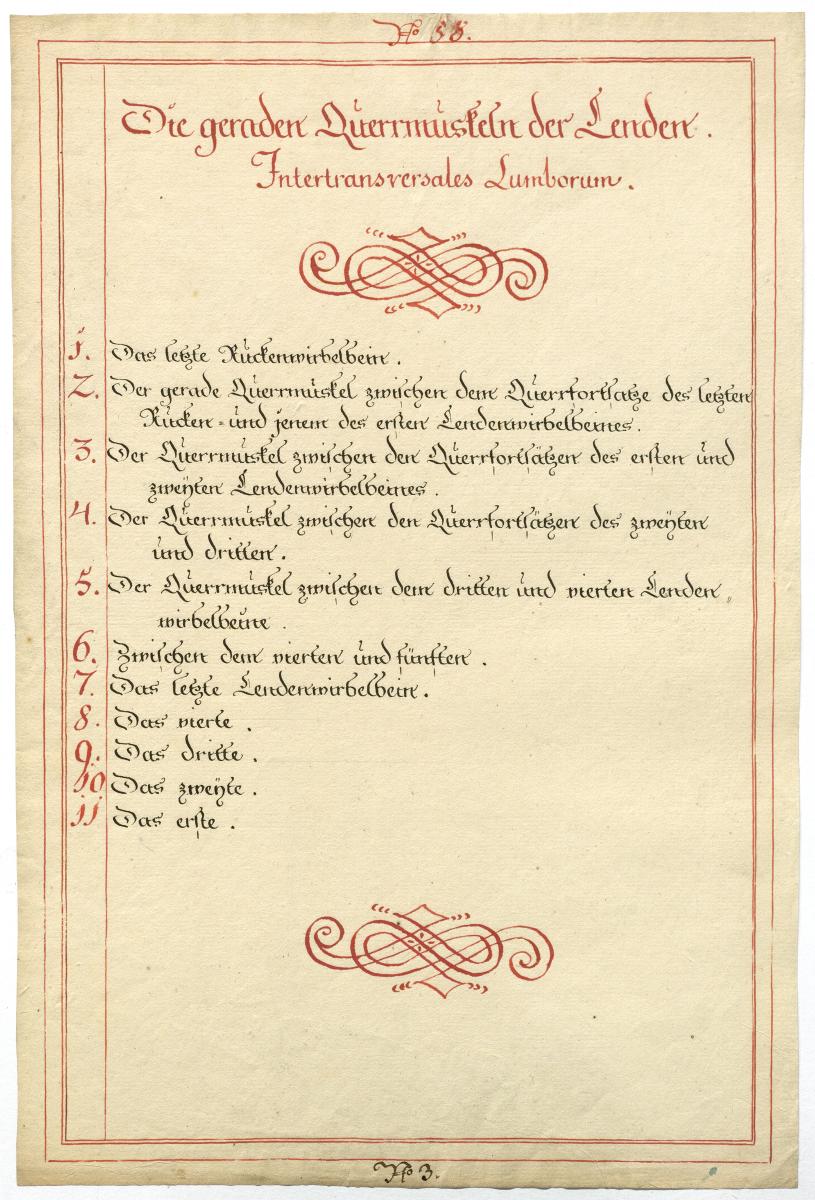 No 58.
Die geraden Querrmuskeln der Lenden.
Intertransversales Lumborum.
1. Das letzte Ruckenwirbelbein.
2. Der gerade Querrmuskel zwischen dem Querrfortsatze des letzten
Rucken= und jenem des ersten Lendenwirbelbeines.
3. Der Querrmuskel zwischen den Querrfortsätzen des ersten und
zweÿten Lendenwirbelbeines.
4. Der Querrmuskel zwischen den Querrfortsätzen des zweÿten
und dritten.
5. Der Querrmuskel zwischen dem dritten und vierten Lenden„
wirbelbeine.
6. Zwischen dem vierten und fünften.
7. Das letzte Lendenwirbelbein.
8. Das vierte.
9. Das dritte.
10 Das zweÿte.
11 Das erste.
No 3.